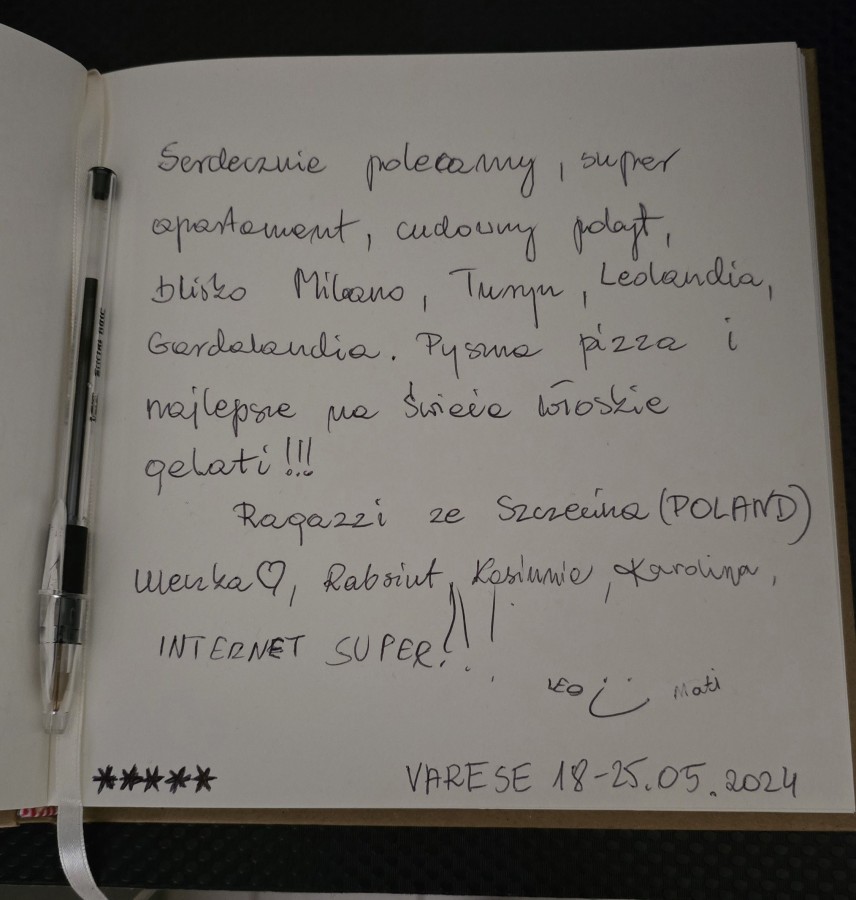 Serdecznie polecamy, super
apartament, cudowny pobyt,
blisko Milano, Turyn, Leolandia,
Gardalandia. Pyszna pizza i
najlepsze na świecie włoskie
gelati!!!
Ragazzi ze Szczecina (POLAND)
♡, Karolina,
INTERNET SUPER!!!
LEO Mati
***** VARESE 18-25.05.2024